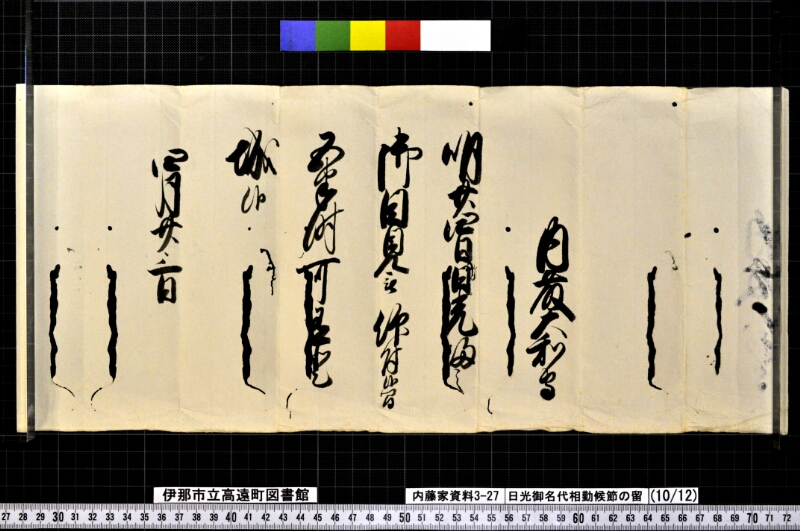 内藤大和守
明廿四日日光御
御目見被 仰付候間
五半時可有登
城候
四月廿三日
伊那市立高遠町図書館
内藤家資料3-27
日光御名代相勤候節の留
(10/12)
27 28 29 30 31 32 33 34 35 36 37 38 39 40 41 42 43 44 45 46 47 48 49 50 51 52 53 54 55 56 57 58 59 60 61 62 63 64 65 66 67 68 69 70 71 72